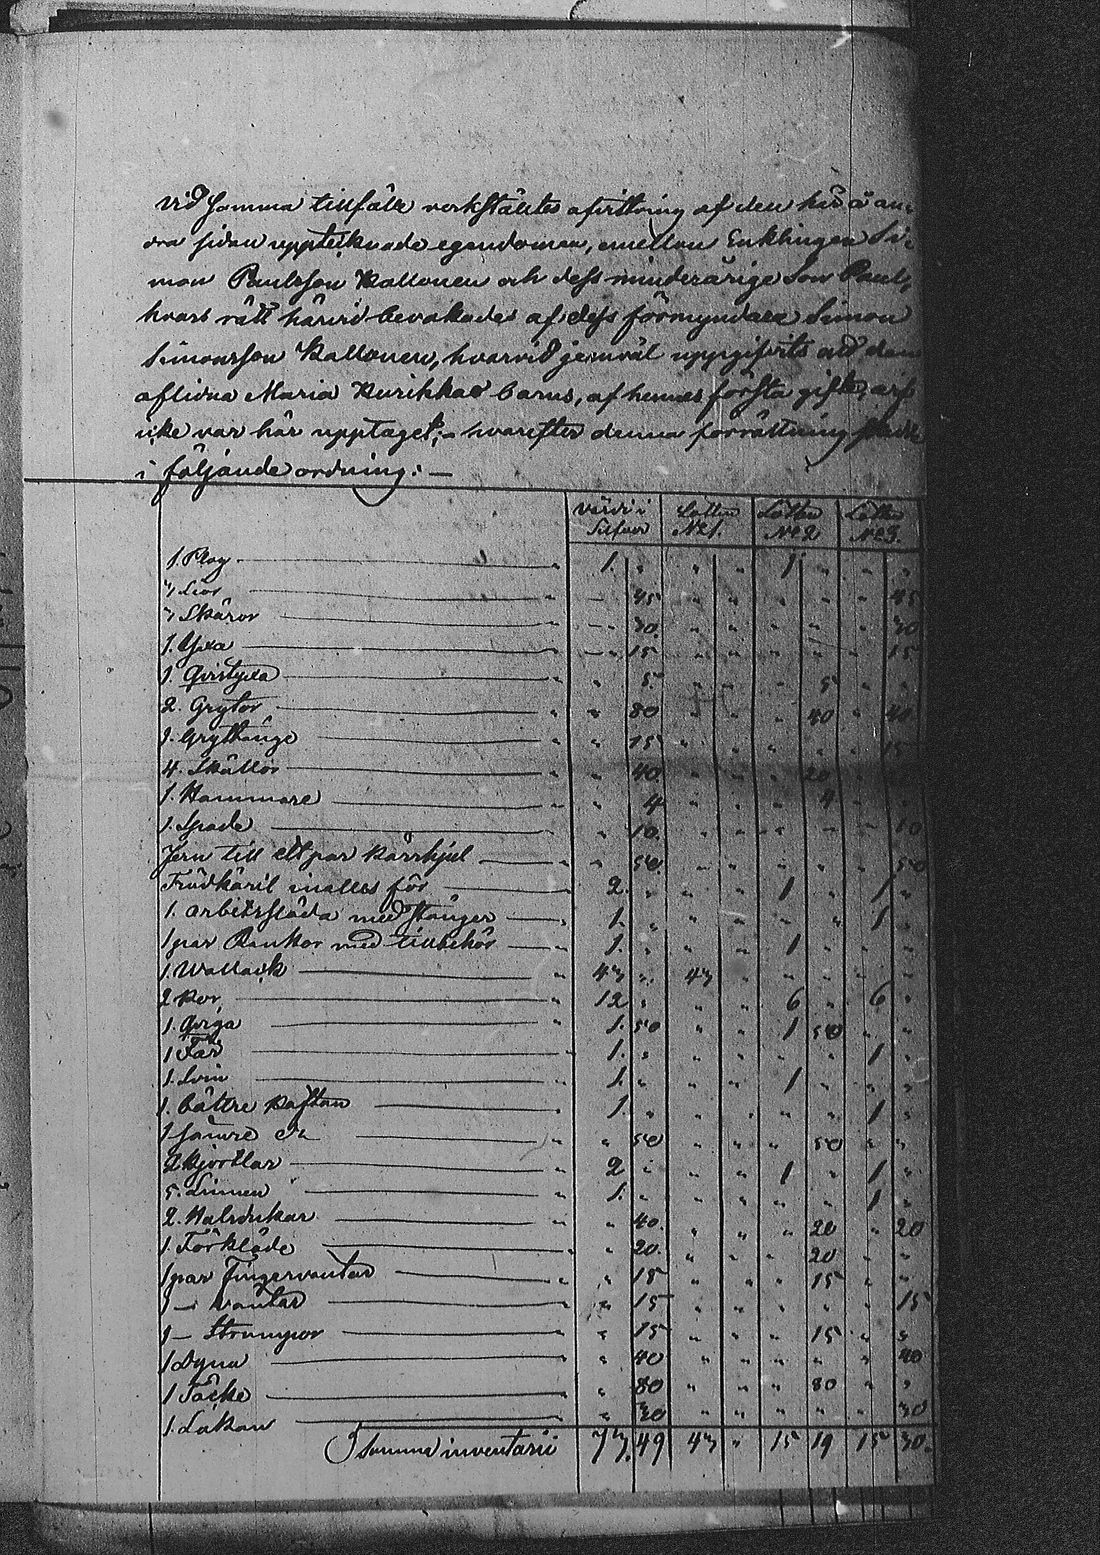 Vid samma tillfälle verkstältes afvittring af den här å an-
dra sidan uppteknade egendomen, emellan Enklingen Si-
mon Paulsson Kallonen och dess minderårige Son Paul,
hvars rätt härvid bevakades af dess förmyndare Simon
Simonsson Kallonen, hvarvid jemväl uppgifvits att den
aflidna Maria Kurikkas barns, af hennes första gifte, arf
icke var här upptaget; hvarefter denna förrättning skedde
i följande ordning: —
värde i Silfver Lotten No 1. Lotten No 2 Lotten No 3.
1. Plog 1. " " " 1 " " "
Lior — 45 " " " " " 45
Skäror — 30. " " " " " 30
1. Yxa — 15 " " " " " 15
1. Qvistyxa " 5. " " " 5 " "
2. Grytor " 80 " " " 40 " 40
1. Grythänge " 15 " " " " " 15
4. Skållor " 40 " " " 20
1. Hammare " 4 " " " 4 " "
1. Spade " 10. " " " " " 10
Jern till ett par kärrhjul " 50. " " " " " 50
Trädkäril inalles för 2. " " " 1 " 1 "
1. arbetssläda med stänger 1. " " " " " 1 "
1 par Bankor med tillbehör 1. " " " 1 " " "
1. Wallack 43 " 43 " " " " "
2 Kor 12 " " " 6 " 6 "
1. Qviga 1. 50 " " 1 50 " "
1 Får 1. " " " " " 1 "
1. Svin 1. " " " 1 " " "
1. bättre kaftan 1. " " " " " 1 "
1 sämre d:o " 50 " " " 50 " "
2 Kjortlar 2 " " " 1 " 1 "
5. Linnen 1. " " " " " 1 "
2. Halsdukar " 40. " " " 20 " 20
1. Förkläde " 20. " " " 20 " "
1 par Fingervantar " 15 " " " 15 " "
1 — vantar " 15 " " " " " 15
1 — Strumpor " 15 " " " 15 " "
1 Dyna " 40 " " " " " 40
1 Täcke " 80 " " " 80 " "
1. Lakan " 30 " " " " " 30
Summa inventarii 73. 49 43 " 15 19 15 30.